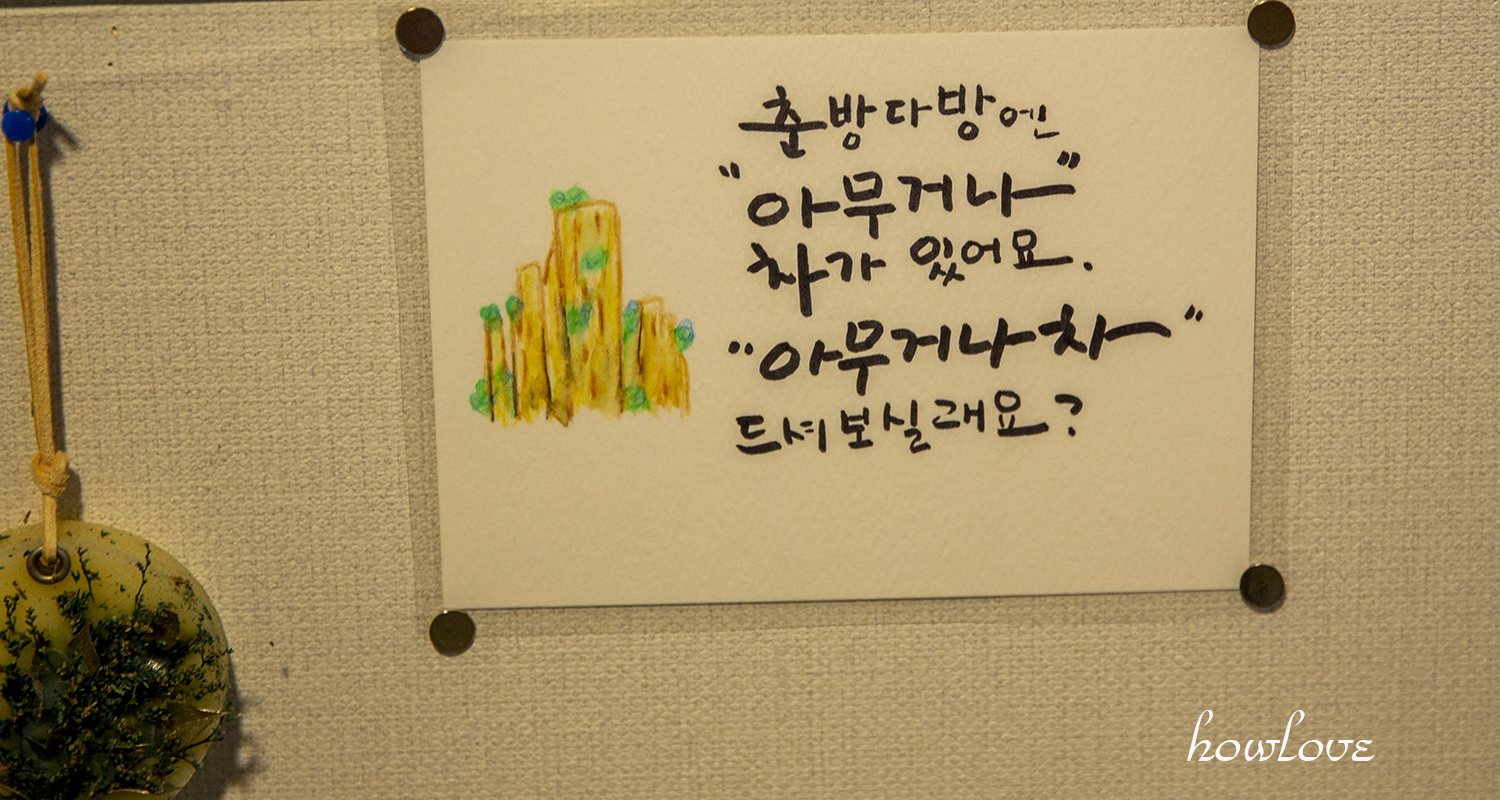 춘방다방엔
"아무거나"
차가 있어요.
"아무거나차"
드셔보실래요?
howlove